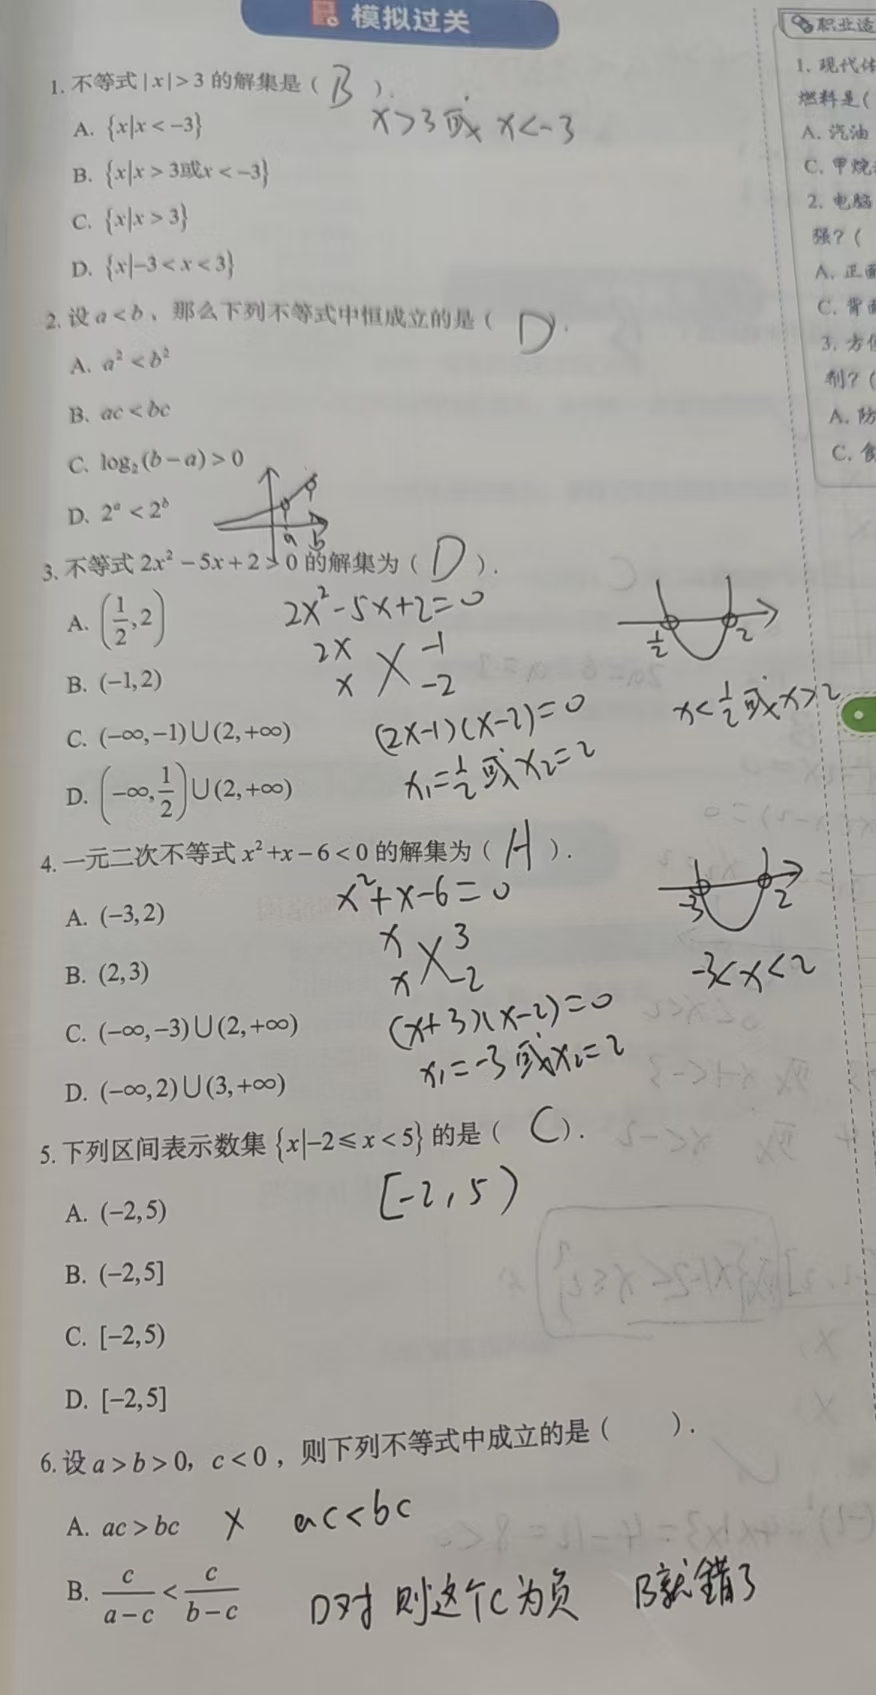 模拟过关
1. 不等式 |x| > 3 的解集是 ( B ).
x>3 或 x<-3
A. {x|x < -3}
B. {x|x > 3或x < -3}
C. {x|x > 3}
D. {x|-3 < x < 3}
2. 设 a < b 、那么下列不等式中恒成立的是 ( D ).
A. a² < b²
B. ac < bc
C. log₂(b-a) > 0
D. 2ᵃ < 2ᵇ
a b
3. 不等式 2x² - 5x + 2 > 0 的解集为 ( D ).
2x²-5x+2=0
A. (1/2, 2)
2x -1
x -2
1/2 2
B. (-1,2)
(2x-1)(x-2)=0
x<1/2 或 x>2
C. (-∞,-1)∪(2,+∞)
x₁=1/2 或 x₂=2
D. (-∞, 1/2)∪(2,+∞)
4. 一元二次不等式 x²+x-6<0 的解集为 ( A ).
x²+x-6=0
A. (-3,2)
x 3
x -2
-3 2
B. (2,3)
-3<x<2
C. (-∞,-3)∪(2,+∞)
(x+3)(x-2)=0
x₁=-3 或 x₂=2
D. (-∞,2)∪(3,+∞)
5. 下列区间表示数集 {x|-2≤x<5} 的是 ( C ).
[-2,5)
A. (-2,5)
B. (-2,5]
C. [-2,5)
D. [-2,5]
6. 设 a>b>0, c<0 , 则下列不等式中成立的是 ( ).
A. ac > bc × ac<bc
B. c/(a-c) < c/(b-c) D对 则这个C为负 B就错了
职业适
1、现代体
燃料是(
A、汽油
C、甲烷
2、电脑
强? (
A、正面
C、背面
3、方便
剂? (
A、防
C、食